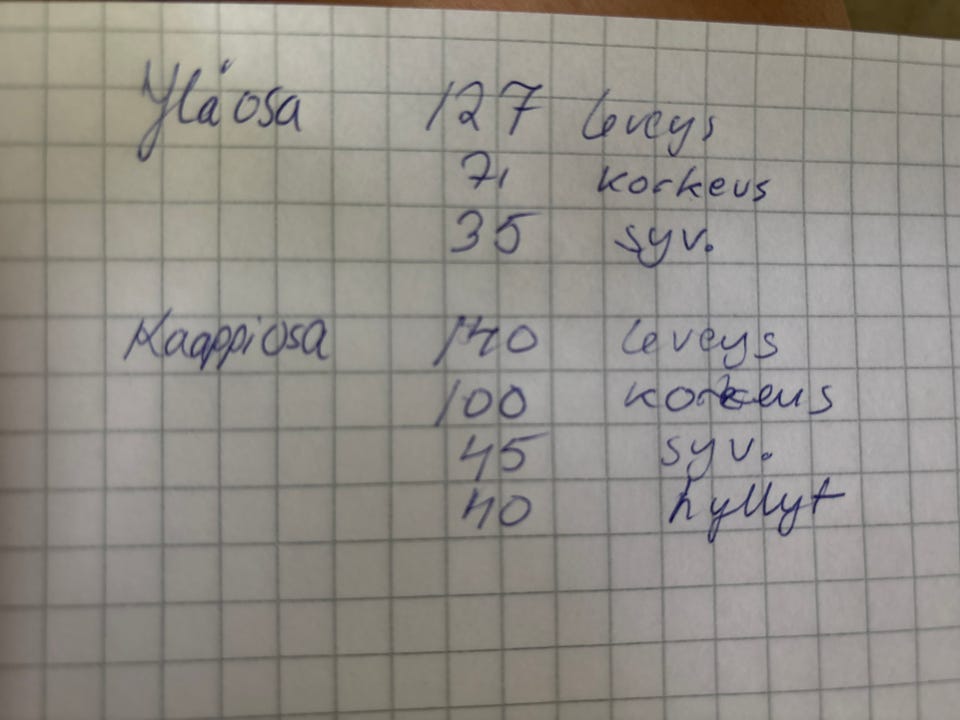 Yläosa 127 leveys
71 korkeus
35 syv.
Kaappiosa 140 leveys
100 korkeus
45 syv.
40 hyllyt